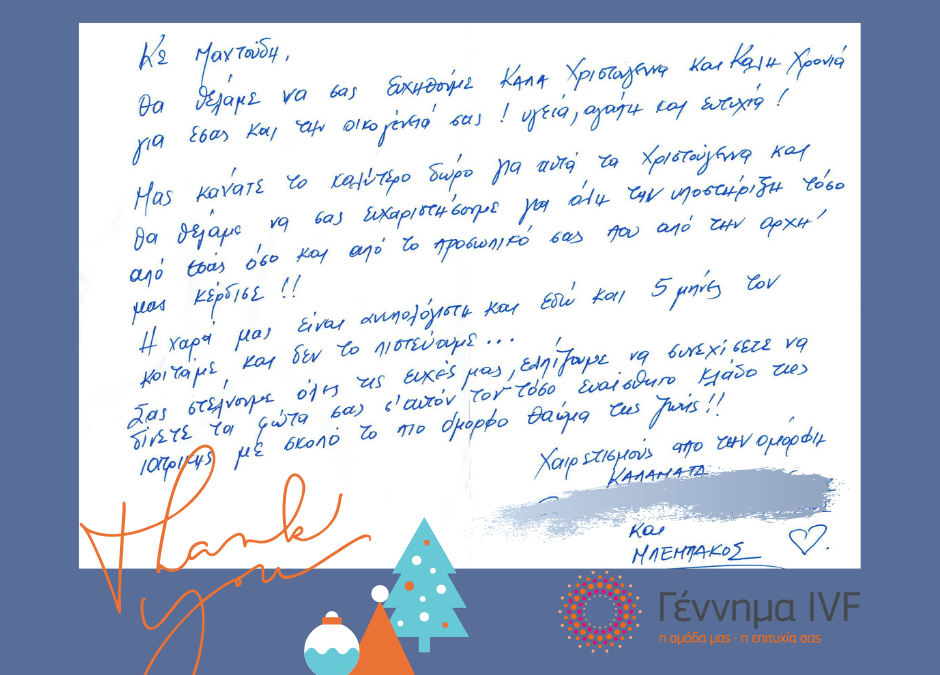 Κε Μαντούδη,
θα θέλαμε να σας ευχηθούμε ΚΑΛΑ Χριστούγεννα και Καλη Χρονιά
για εσας και την οικογένειά σας ! υγεία, αγάπη και ευτυχία !
Μας κάνατε το καλύτερο δώρο για αυτά τα Χριστούγεννα και
θα θέλαμε να σας ευχαριστήσουμε για όλη την υποστήριξη τόσο
από εσάς όσο και από το προσωπικό σας που από την αρχή
μας κέρδισε !!
Η χαρά μας είναι ανυπολόγιστη και εδώ και 5 μήνες τον
κοιτάμε και δεν το πιστεύουμε...
Σας στέλνουμε όλες τις ευχές μας, ελπίζουμε να συνεχίσετε να
δίνετε τα φώτα σας σ'αυτόν τον τόσο ευαίσθητο κλάδο της
ιατρικης με σκοπό το πιο όμορφο θαύμα της ζωής!!
Χαιρετισμούς απο την ομόρφη
ΚΑΛΑΜΑΤΑ
και
ΜΠΕΜΠΑΚΟΣ
Thank
you
Γέννημα IVF
η ομάδα μας · η επιτυχία σας